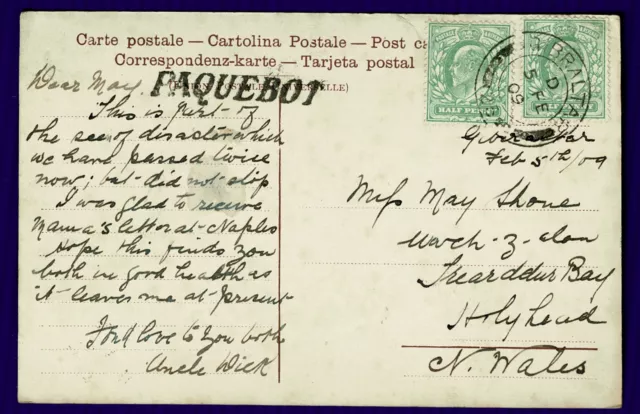 Carte postale — Cartolina Postale — Post ca
Correspondenz-karte — Tarjeta postal
PAQUEBOT
HALF PENNY
HALF PENNY
GIBRALTAR
D
5 FE
09
Dear May.
This is part of
the scene of disaster which
we have passed twice
now; but did not stop
I was glad to receive
Mama's letter at Naples
Hope this finds you
both in good health as
it leaves me at present
Fond love to you both
Uncle Dick
Gibraltar
Feb 5th/09
Miss May Shone
Trearddur Bay
Holyhead
N. Wales